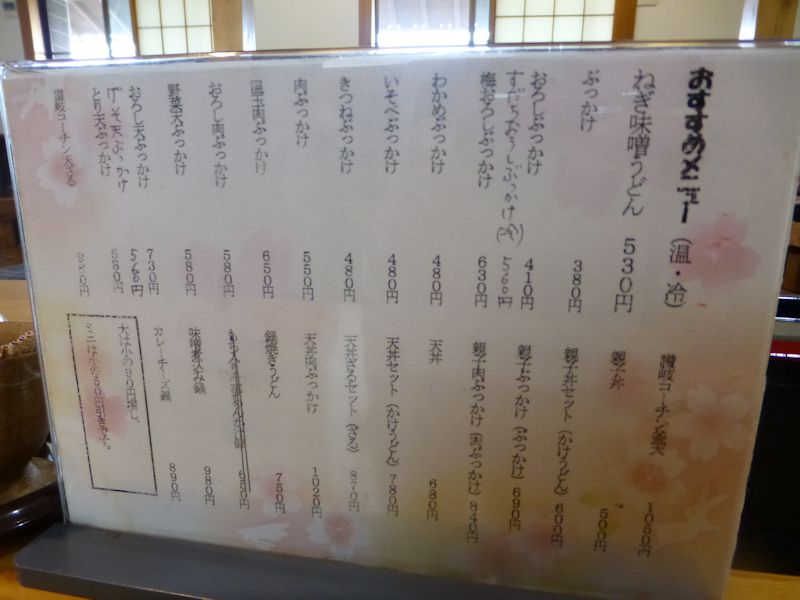 おすすめメニュー (温・冷)
ねぎ味噌うどん 530円
ぶっかけ 380円
おろしぶっかけ 410円
すだちおろしぶっかけ(冷) 560円
梅おろしぶっかけ 630円
わかめぶっかけ 480円
いそべぶっかけ 480円
きつねぶっかけ 480円
肉ぶっかけ 550円
温玉肉ぶっかけ 650円
おろし肉ぶっかけ 580円
野菜天ぶっかけ 580円
おろし天ぶっかけ 730円
げそ天ぶっかけ 560円
とり天ぶっかけ 580円
讃岐コーチン天ざる 980円
讃岐コーチン釜天 1050円
親子丼 500円
親子丼セット (かけうどん) 600円
親子ぶっかけ (ぶっかけ) 690円
親子肉ぶっかけ (肉ぶっかけ) 840円
天丼 630円
天丼セット (かけうどん) 780円
天丼ざるセット (ざる) 870円
天丼肉ぶっかけ 1020円
鍋焼きうどん 750円
650円
味噌煮込み鍋 980円
カレーチーズ鍋 890円
大は小の90円増し、
ミニは小の50円引きです。